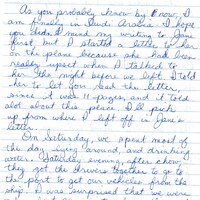 As you probably know by now, I
am finally in Saudi Arabia. I hope
you didn't mind my writing to Jane
first, but I started a letter to her
on the plane because she had been
really upset when I talked to
her the night before we left. I told
her to let you read the letter,
since it was 11 pages, and it told
alot about this place. I'll pick
up from where I left off in Jane's
letter.
On Saturday, we spent most of
the day lying around, and drinking
water. Saturday evening, after chow,
they got the drivers together to go to
the port to get our vehicles from the
ship. I was surprised that we were